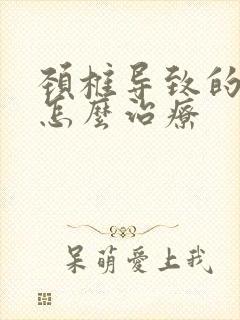 颈椎导致的
怎麼治療
呆萌愛上我